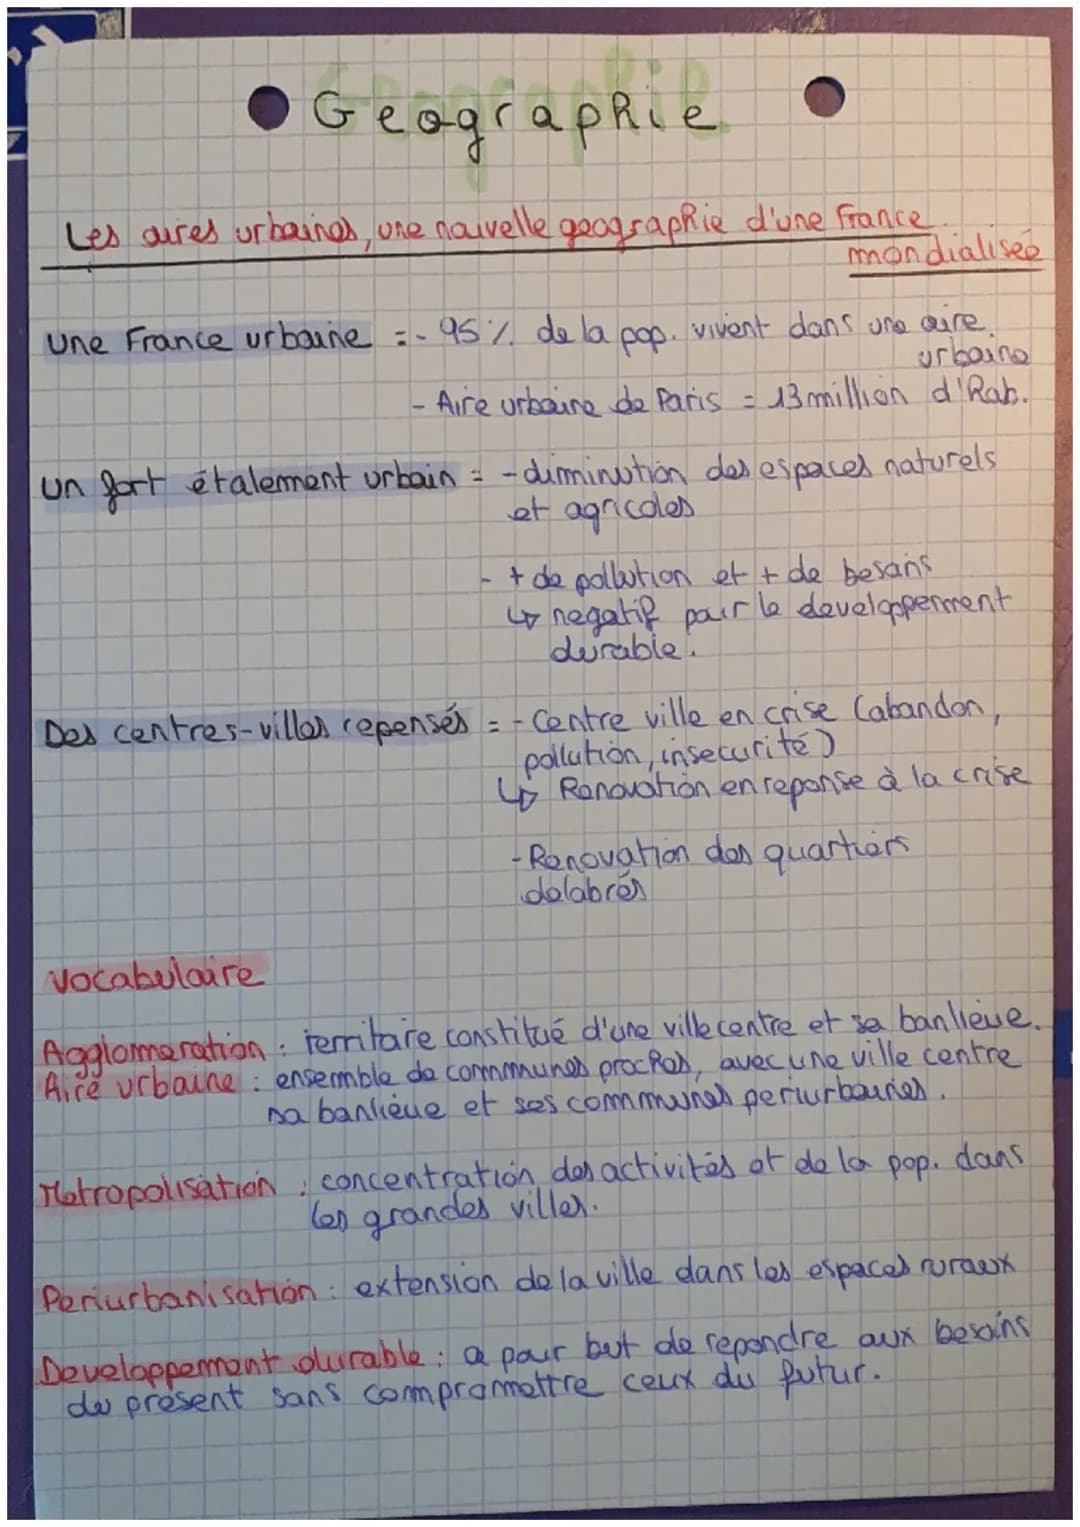 Geographie
Les aires urbaines, une nouvelle geographie d'une France
mondialisée
Une France urbaine = - 95 % de la pop. vivent dans une aire
urbaine
- Aire urbaine de Paris = 13 million d'hab.
Un fort étalement urbain = - diminution des espaces naturels
et agricoles
- + de pollution et + de besoins
↳ negatif pour le developpement
durable.
Des centres-villes repensés = - Centre ville en crise (abandon,
pollution, insecurité)
↳ Renovation en reponse à la crise
- Renovation des quartiers
delabrés
Vocabulaire
Agglomeration : territoire constitué d'une ville centre et sa banlieue.
Aire urbaine : ensemble de communes proches, avec une ville centre
sa banlieue et ses communes periurbaines.
Metropolisation : concentration des activités et de la pop. dans
les grandes villes.
Periurbanisation : extension de la ville dans les espaces ruraux
Developpement durable : a pour but de repondre aux besoins
du present sans compromettre ceux du futur.